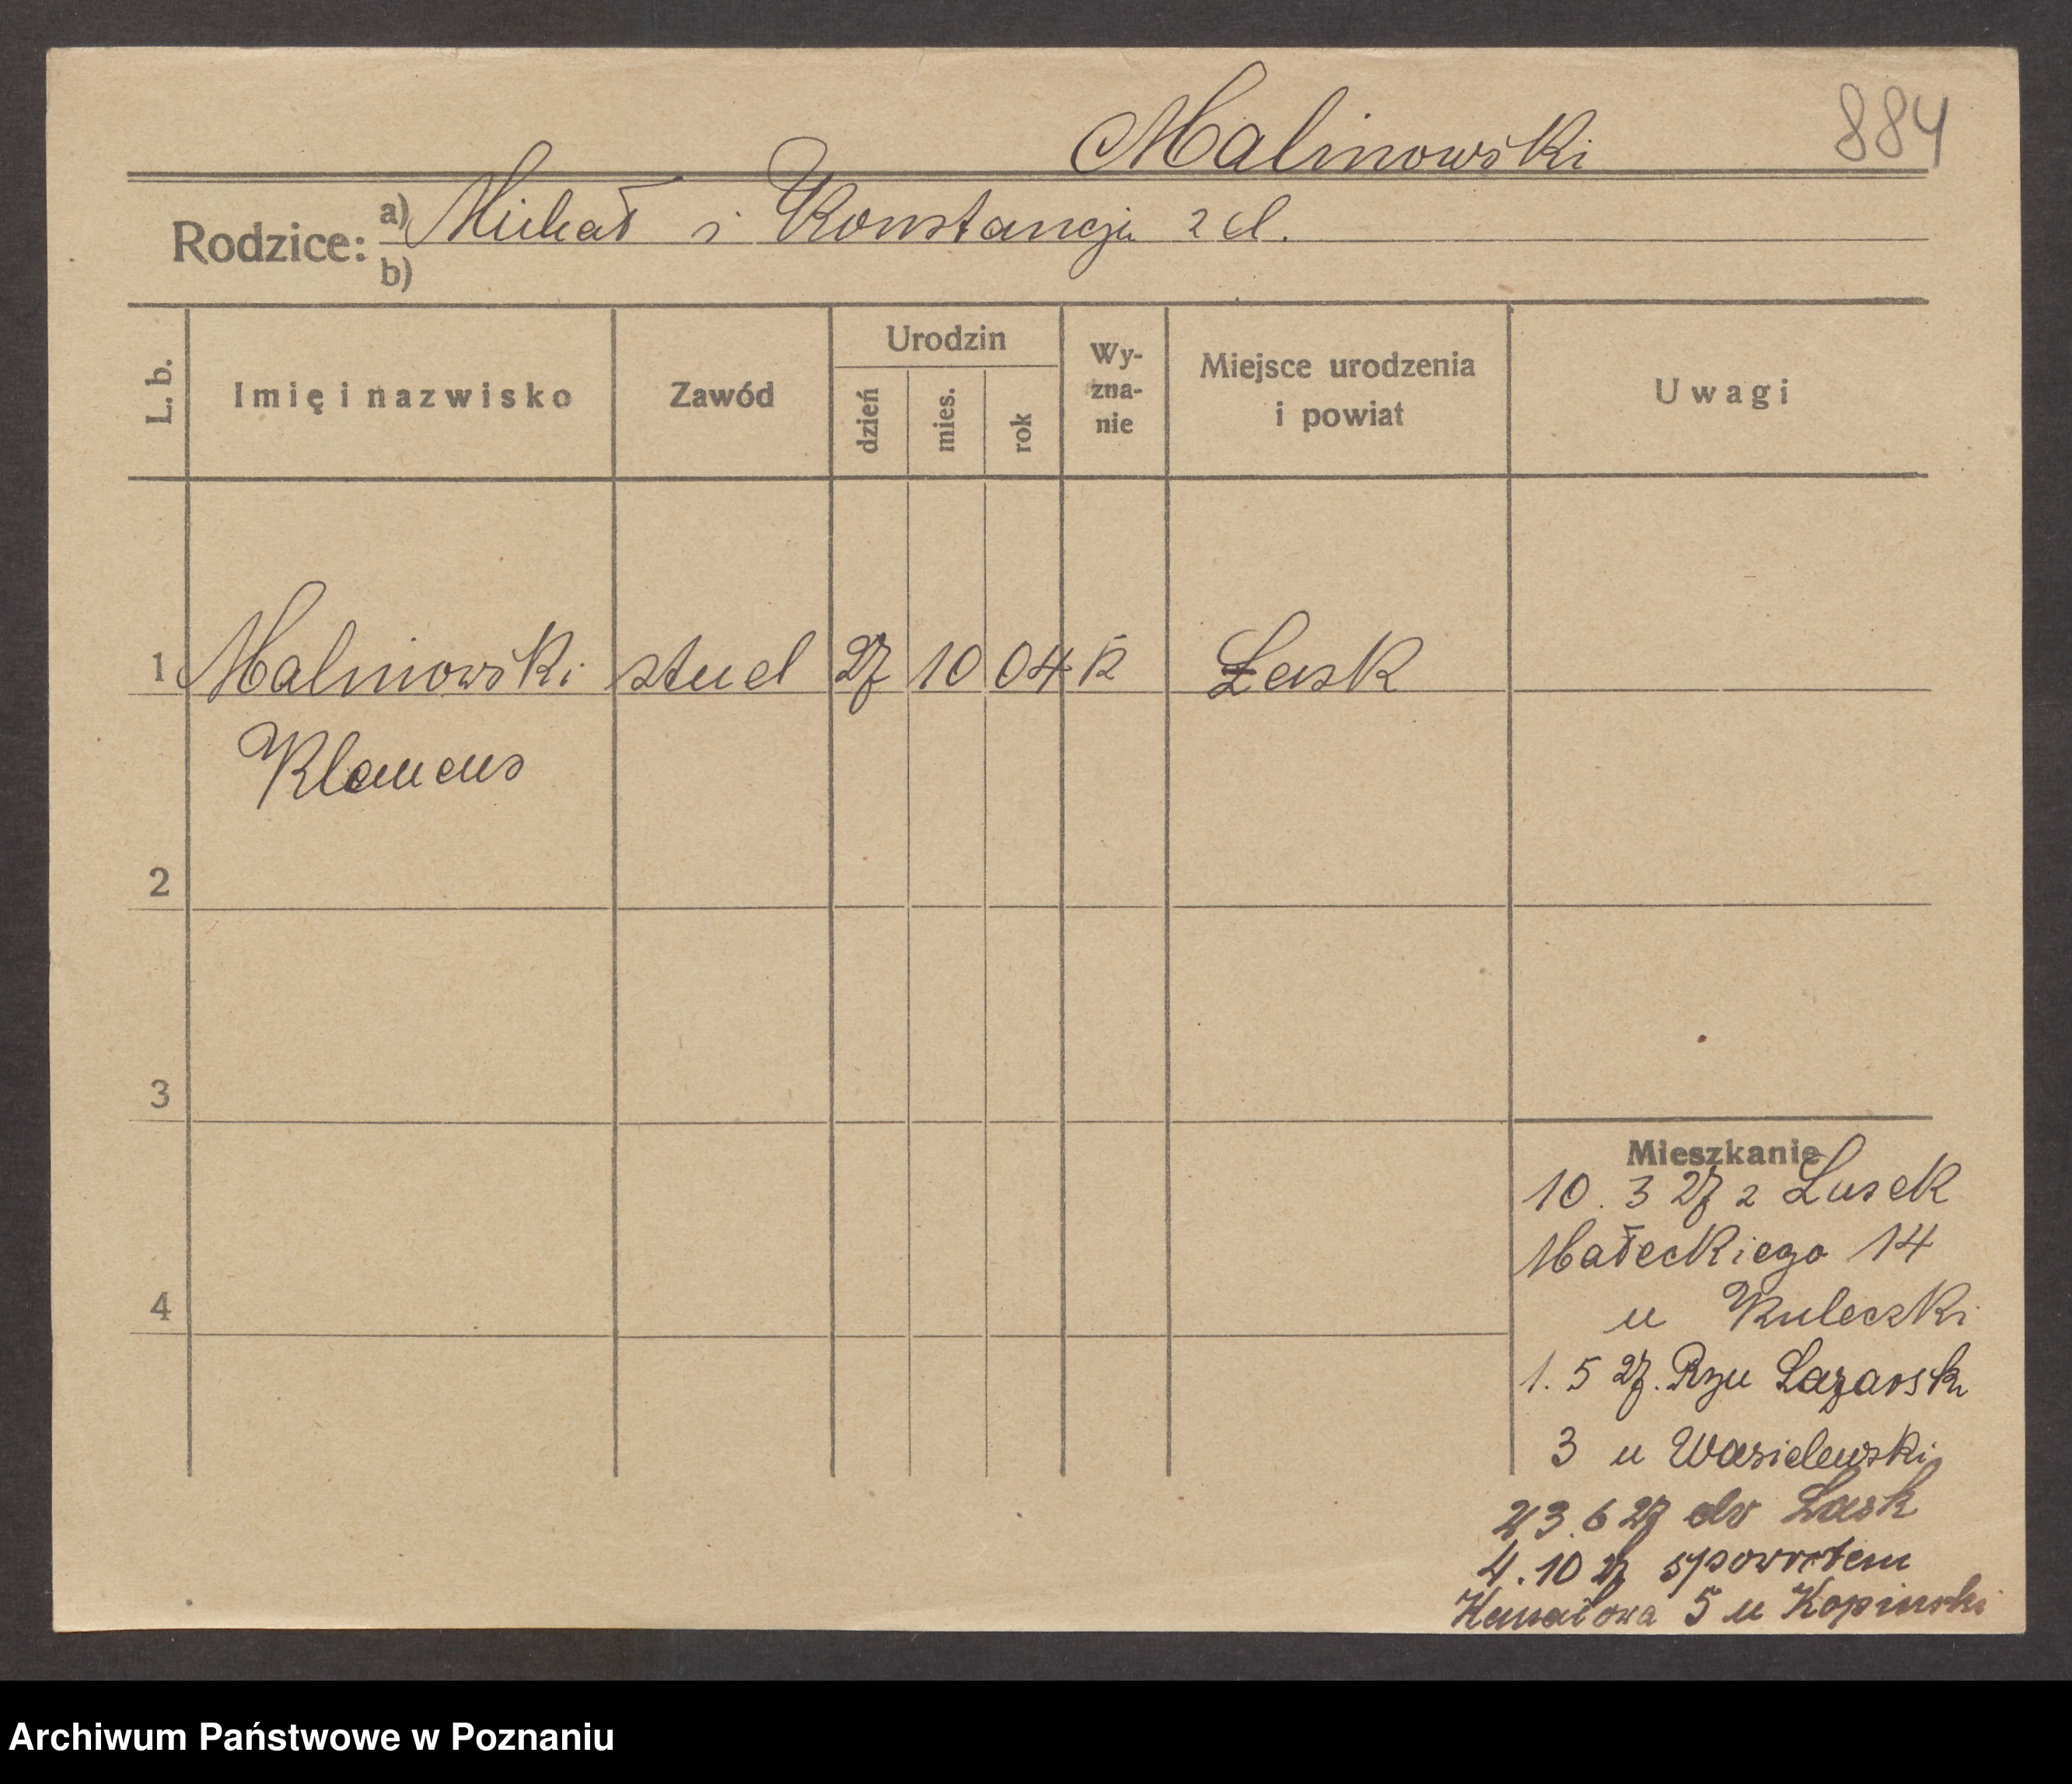 884
Malinowski
Rodzice: a) Michał i Konstancja z d.
b)
L. b.
Imię i nazwisko
Zawód
Urodzin
dzień
mies.
rok
Wy-
zna-
nie
Miejsce urodzenia
i powiat
Uwagi
1 Malinowski stud 27 10 04 k Łask
2
3
4
Mieszkanie
10. 3 27 z
Małeckiego 14
u Kuleczki
1. 5 27. Ryn Lazarsk
3 u Wasielewski
23. 6 27 do Łask
4. 10 27 spowrotem
Kanałowa 5 u Kopinski
Archiwum Państwowe w Poznaniu